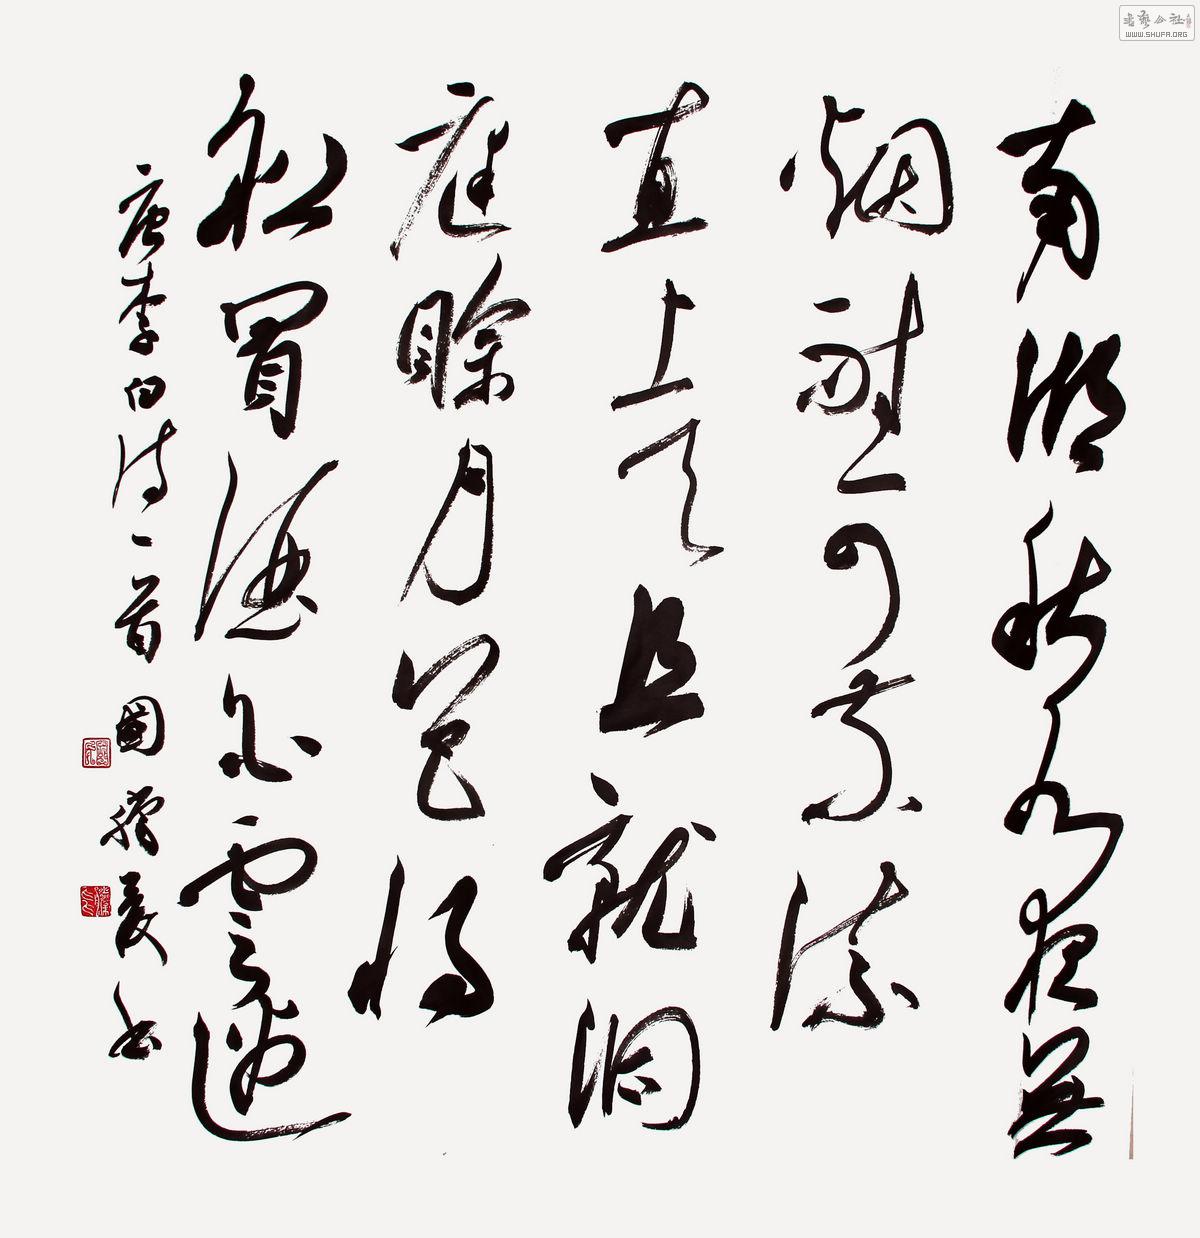 南湖秋水夜無
烟耐可乘流
直上天且就洞
庭賒月色将
船買酒白雲邊
唐李白诗一首 國 书
書藝公社
WWW.SHUFA.ORG